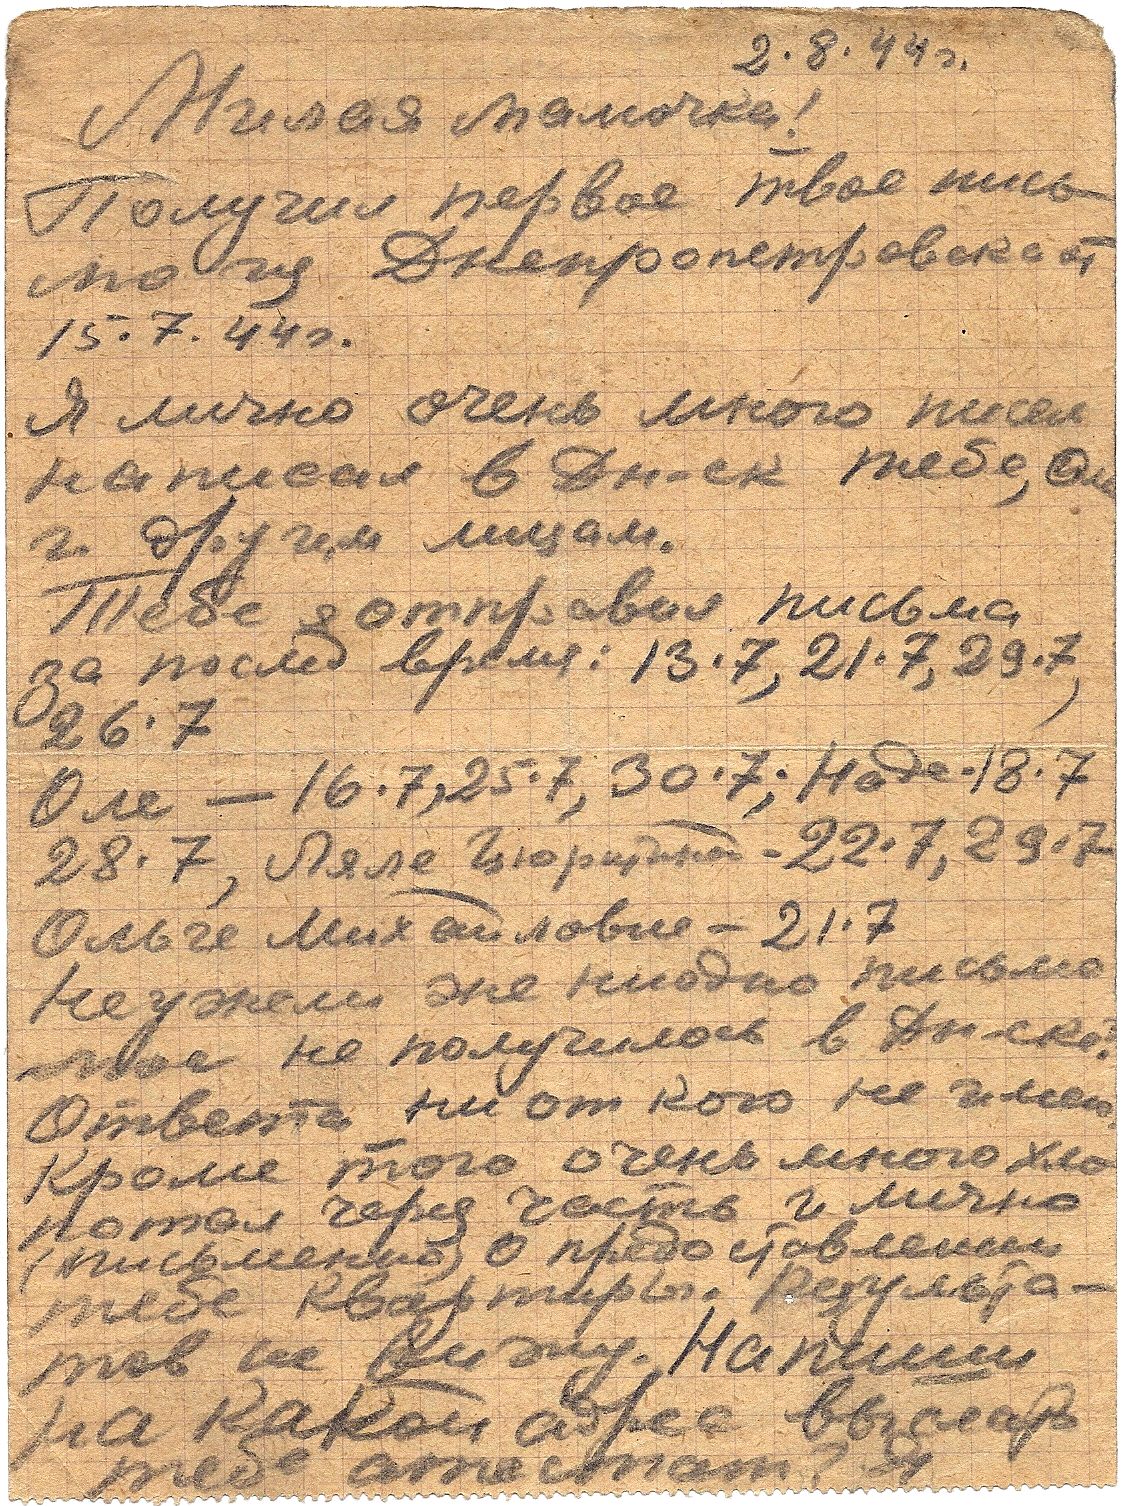 2.8.44г.
Милая мамочка!
Получил первое твое пись-
мо из Днепропетровска от
15.7.44г.
Я лично очень много писем
написал в Дн-ск тебе, Оле
и другим лицам.
Тебе я отправил письма
за послед время: 13.7, 21.7, 29.7,
26.7
Оле — 16.7, 25.7, 30.7; Наде - 18.7
28.7, Ляле - 22.7, 29.7
Ольге Михайловне - 21.7
Неужели же ниодно письмо
мое не получилось в Дн-ске?
Ответа ни от кого не имею.
Кроме того очень много хло
потал через часть и лично
(письменно) о предоставлении
тебе квартиры. Результа-
тов не вижу. Напиши
на какой адрес выслать
тебе аттестат? Я